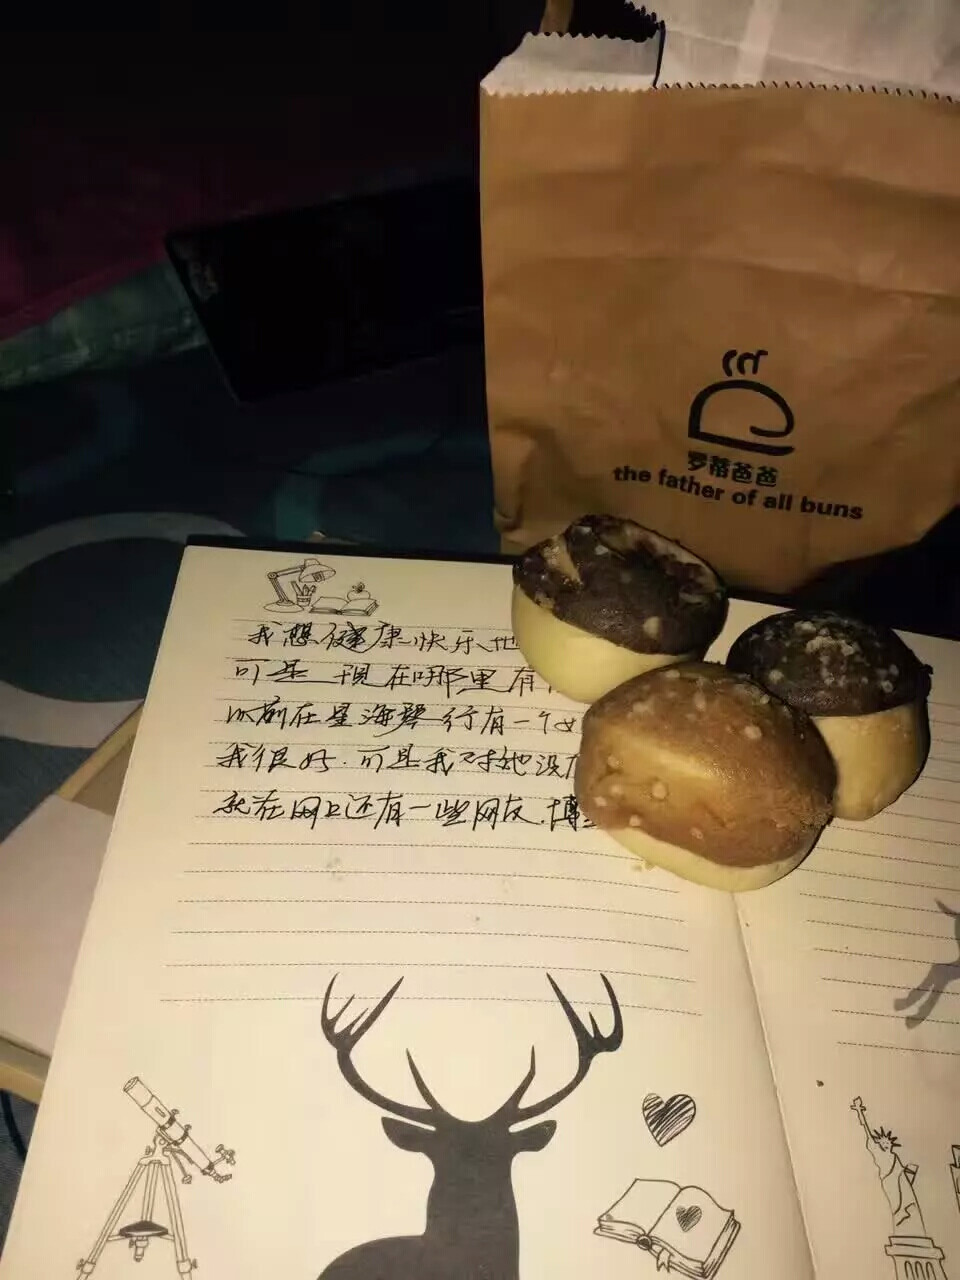 罗蒂爸爸
the father of all buns
我想健康快乐地
可是现在哪里有
以前在星海琴行有一个女
我很好.可是我对她没
就在网上还有一些网友.博